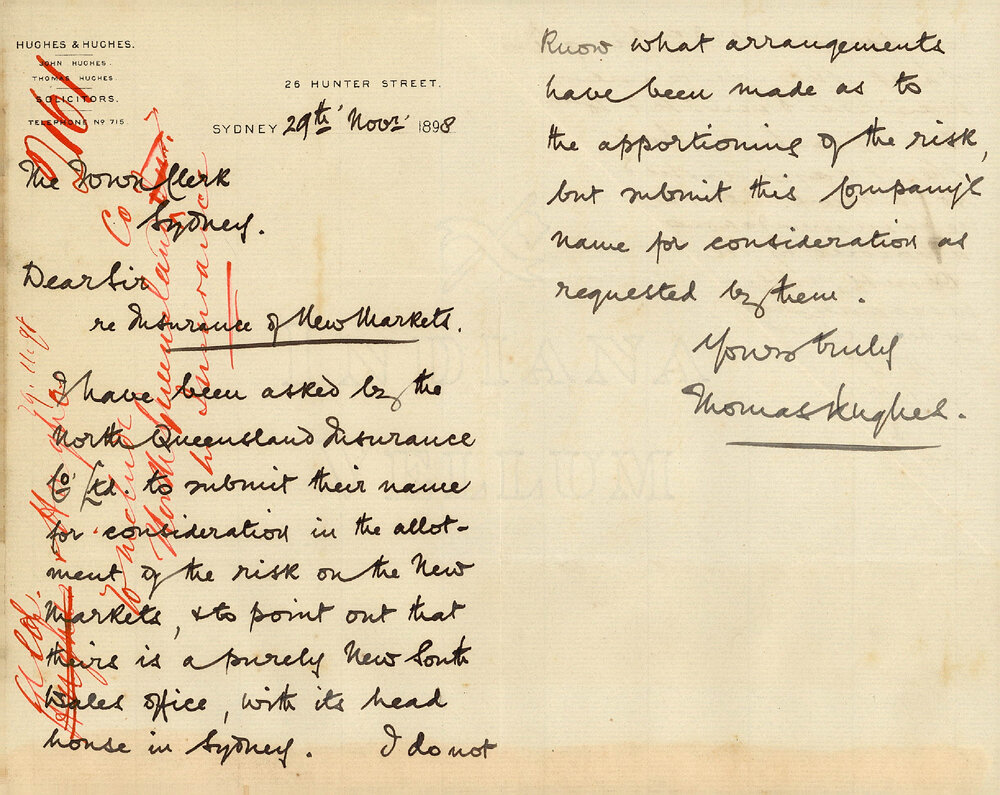 HUGHES & HUGHES.
JOHN HUGHES.
THOMAS HUGHES.
SOLICITORS.
TELEPHONE Nº 715.
26 HUNTER STREET.
SYDNEY 29th Novr 1898
The Town Clerk
Sydney.
Dear Sir
re Insurance of New Markets.
I have been asked by the
North Queensland Insurance
Co Ltd. to submit their name
for consideration in the allot-
ment of the risk on the New
Markets, & to point out that
theirs is a purely New South
Wales office, with its head
house in Sydney. I do not
Know what arrangements
have been made as to
the apportioning of the risk,
but submit this Company's
name for consideration as
requested by them.
Yours truly
Thomas Hughes.
to include
North Queensland
Co
in Insurance